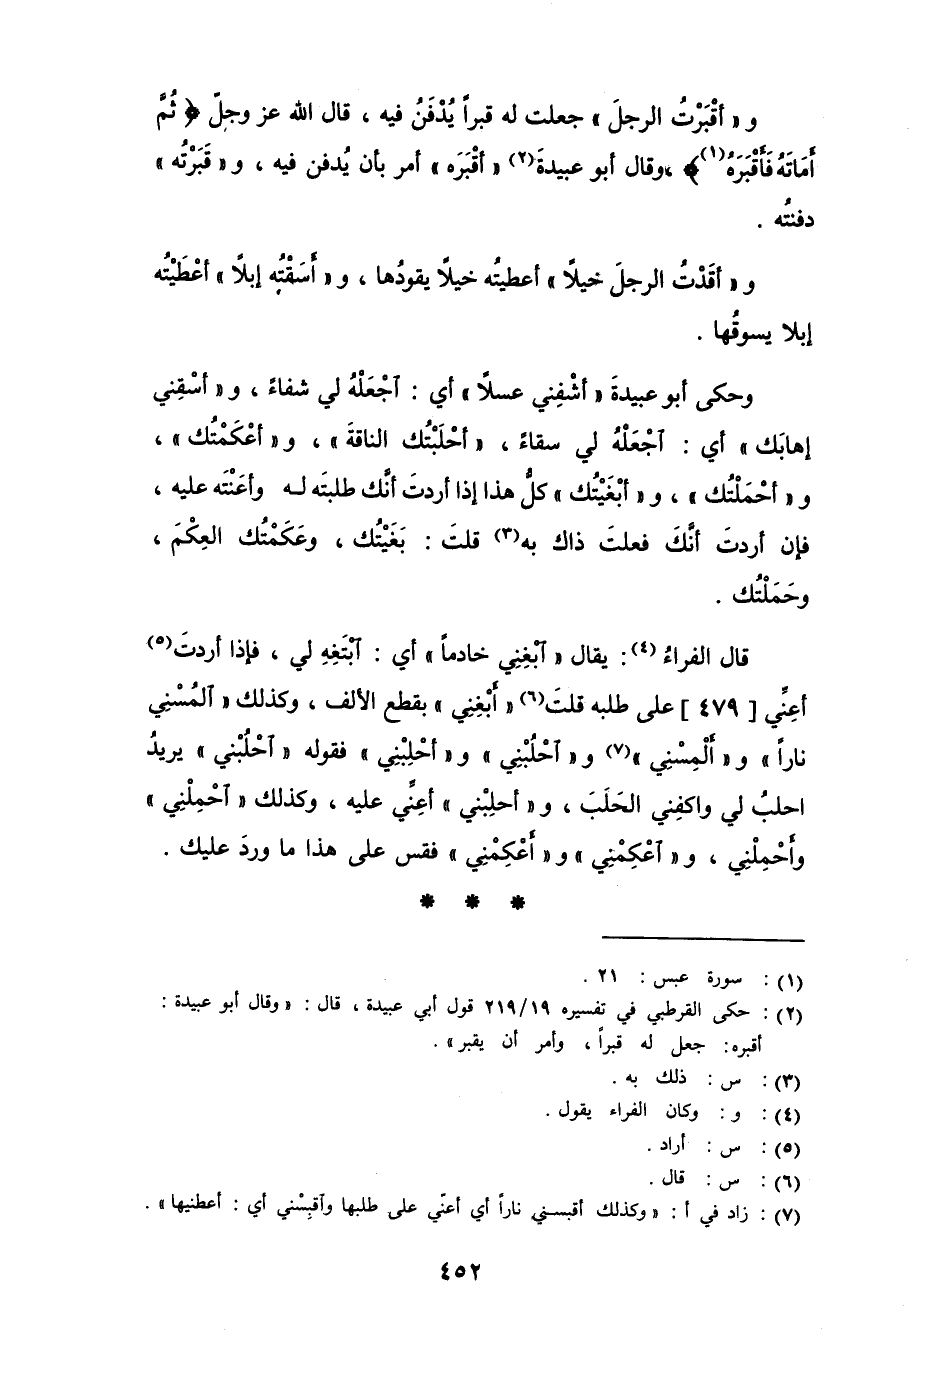 و « أقْبَرْتُ الرجلَ » جعلت له قبراً يُدْفَنُ فيه ، قال الله عز وجلّ ﴿ ثُمَّ
أَمَاتَهُ فَأَقْبَرَهُ(١)﴾ ،وقال أبو عبيدةَ(٢) « أقْبَرَه » أمر بأن يُدفن فيه ، و « قَبَرْتُه »
دفنتُه .
و « أقَدْتُ الرجلَ خيلًا » أعطيتُه خيلًا يقودُها ، و « أَسَقْتُه إبلًا » أعْطَيْتُه
إبلا يسوقُها .
وحكى أبو عبيدةَ « أشْفِني عسلًا » أي : ٱجْعَلْهُ لي شفاءً ، و « أسْقِني
إهابَك » أي : ٱجْعَلْهُ لي سقاءً ، « أحْلَبْتُك الناقةَ » ، و « أعْكَمْتُك » ،
و « أحْمَلْتُك » ، و « أبْغَيْتُك » كلُّ هذا إذا أردتَ أنَّك طلبتَه له وأعَنْتَه عليه ،
فإن أردتَ أنَّكَ فعلتَ ذاك به(٣) قلتَ : بَغَيْتُك ، وعَكَمْتُك العِكْمَ ،
وحَمَلْتُك .
قال الفراءُ (٤): يقال « ٱبْغِنِي خادماً » أي : ٱبْتَغِهِ لي ، فإذا أردتَ(٥)
أعِنِّي [ ٤٧٩ ] على طلبه قلتَ(٦) « أَبْغِنِي » بقطع الألف ، وكذلك « ٱلمُسْنِي
ناراً » و « أَلْمِسْنِي »(٧) و « ٱحْلُبْنِي » و « أحْلِبْنِي » فقوله « ٱحْلُبْني » يريدُ
احلبُ لي واكفِني الحَلَبَ ، و « أحلِبْني » أعِنِّي عليه ، وكذلك « ٱحْمِلْنِي »
وأَحْمِلْنِي ، و « ٱعْكِمْنِي » و « أَعْكِمْنِي » فقس على هذا ما وردَ عليك .
* * *
(١) : سورة عبس : ٢١ .
(٢) : حكى القرطبي في تفسيره ٢١٩/١٩ قول أبي عبيدة ، قال : « وقال أبو عبيدة :
أقبره: جعل له قبراً ، وأمر أن يقبر » .
(٣) : س : ذلك به .
(٤) : و : وكان الفراء يقول .
(٥) : س : أراد .
(٦) : س : قال .
(٧) : زاد في أ : « وكذلك أقبسني ناراً أي أعنّي على طلبها وٱقبِسْني أي : أعطنيها » .
٤٥٢